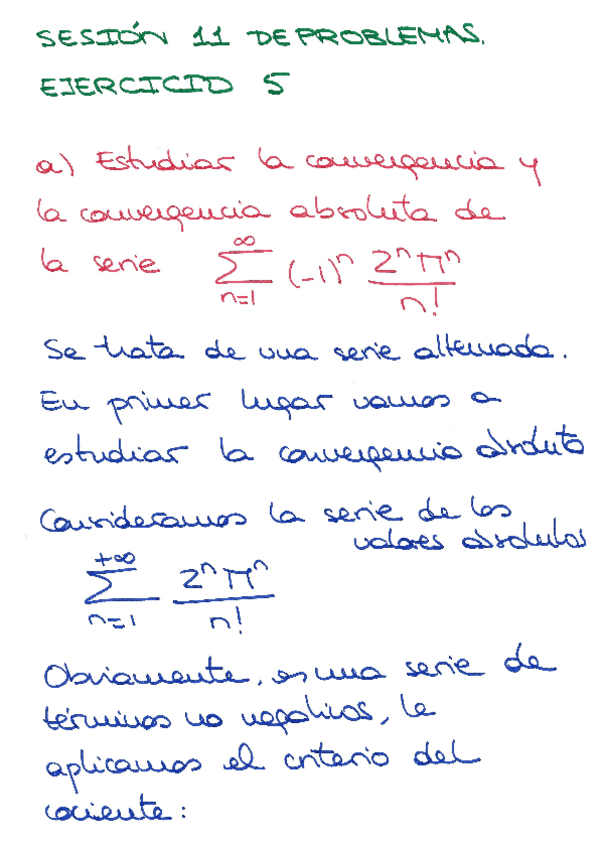 SESIÓN 11 DE PROBLEMAS.
EJERCICIO 5
a) Estudiar la convergencia y
la convergencia absoluta de
la serie ∑_{n=1}^{∞} (-1)^n \frac{2^n π^n}{n!}
Se trata de una serie alternada.
En primer lugar vamos a
estudiar la convergencia absoluta
Consideramos la serie de los
valores absolutos
∑_{n=1}^{+∞} \frac{2^n π^n}{n!}
Obviamente, es una serie de
términos no negativos, le
aplicamos el criterio del
cociente: